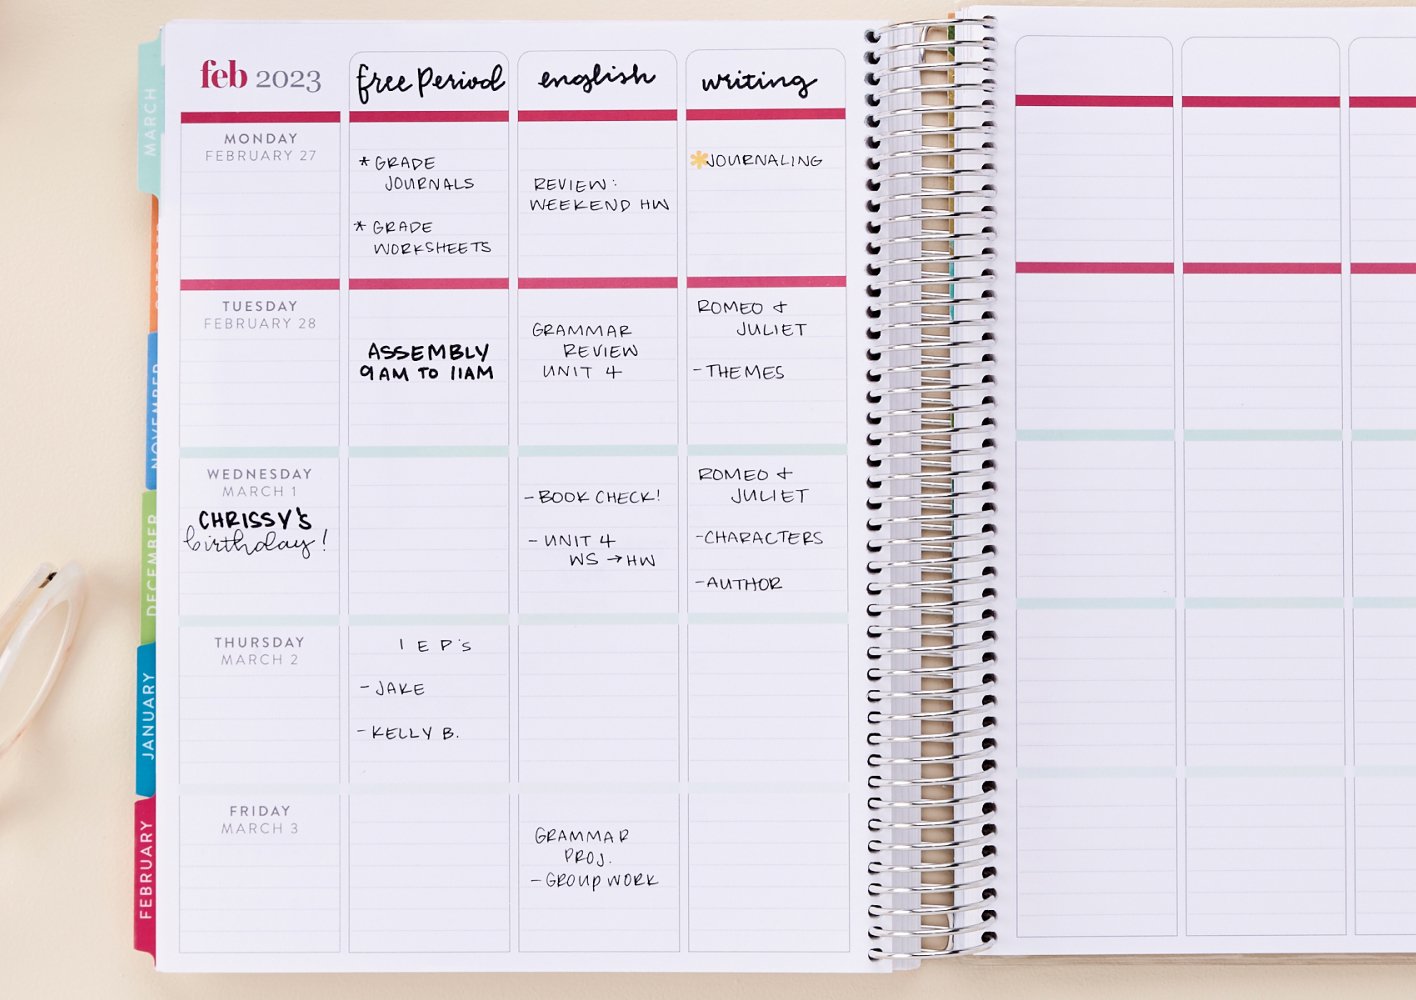 feb 2023
free Period
english
writing
MONDAY
FEBRUARY 27
* GRADE
JOURNALS
* GRADE
WORKSHEETS
REVIEW:
WEEKEND HW
*JOURNALING
TUESDAY
FEBRUARY 28
ASSEMBLY
9AM TO 11AM
GRAMMAR
REVIEW
UNIT 4
ROMEO +
JULIET
-THEMES
WEDNESDAY
MARCH 1
CHRISSY'S
birthday!
-BOOK CHECK!
- UNIT 4
WS → HW
ROMEO +
JULIET
-CHARACTERS
-AUTHOR
THURSDAY
MARCH 2
IEP's
-JAKE
-KELLY B.
FRIDAY
MARCH 3
GRAMMAR
PROJ.
-GROUP WORK
MARCH
NOVEMBER
DECEMBER
JANUARY
FEBRUARY